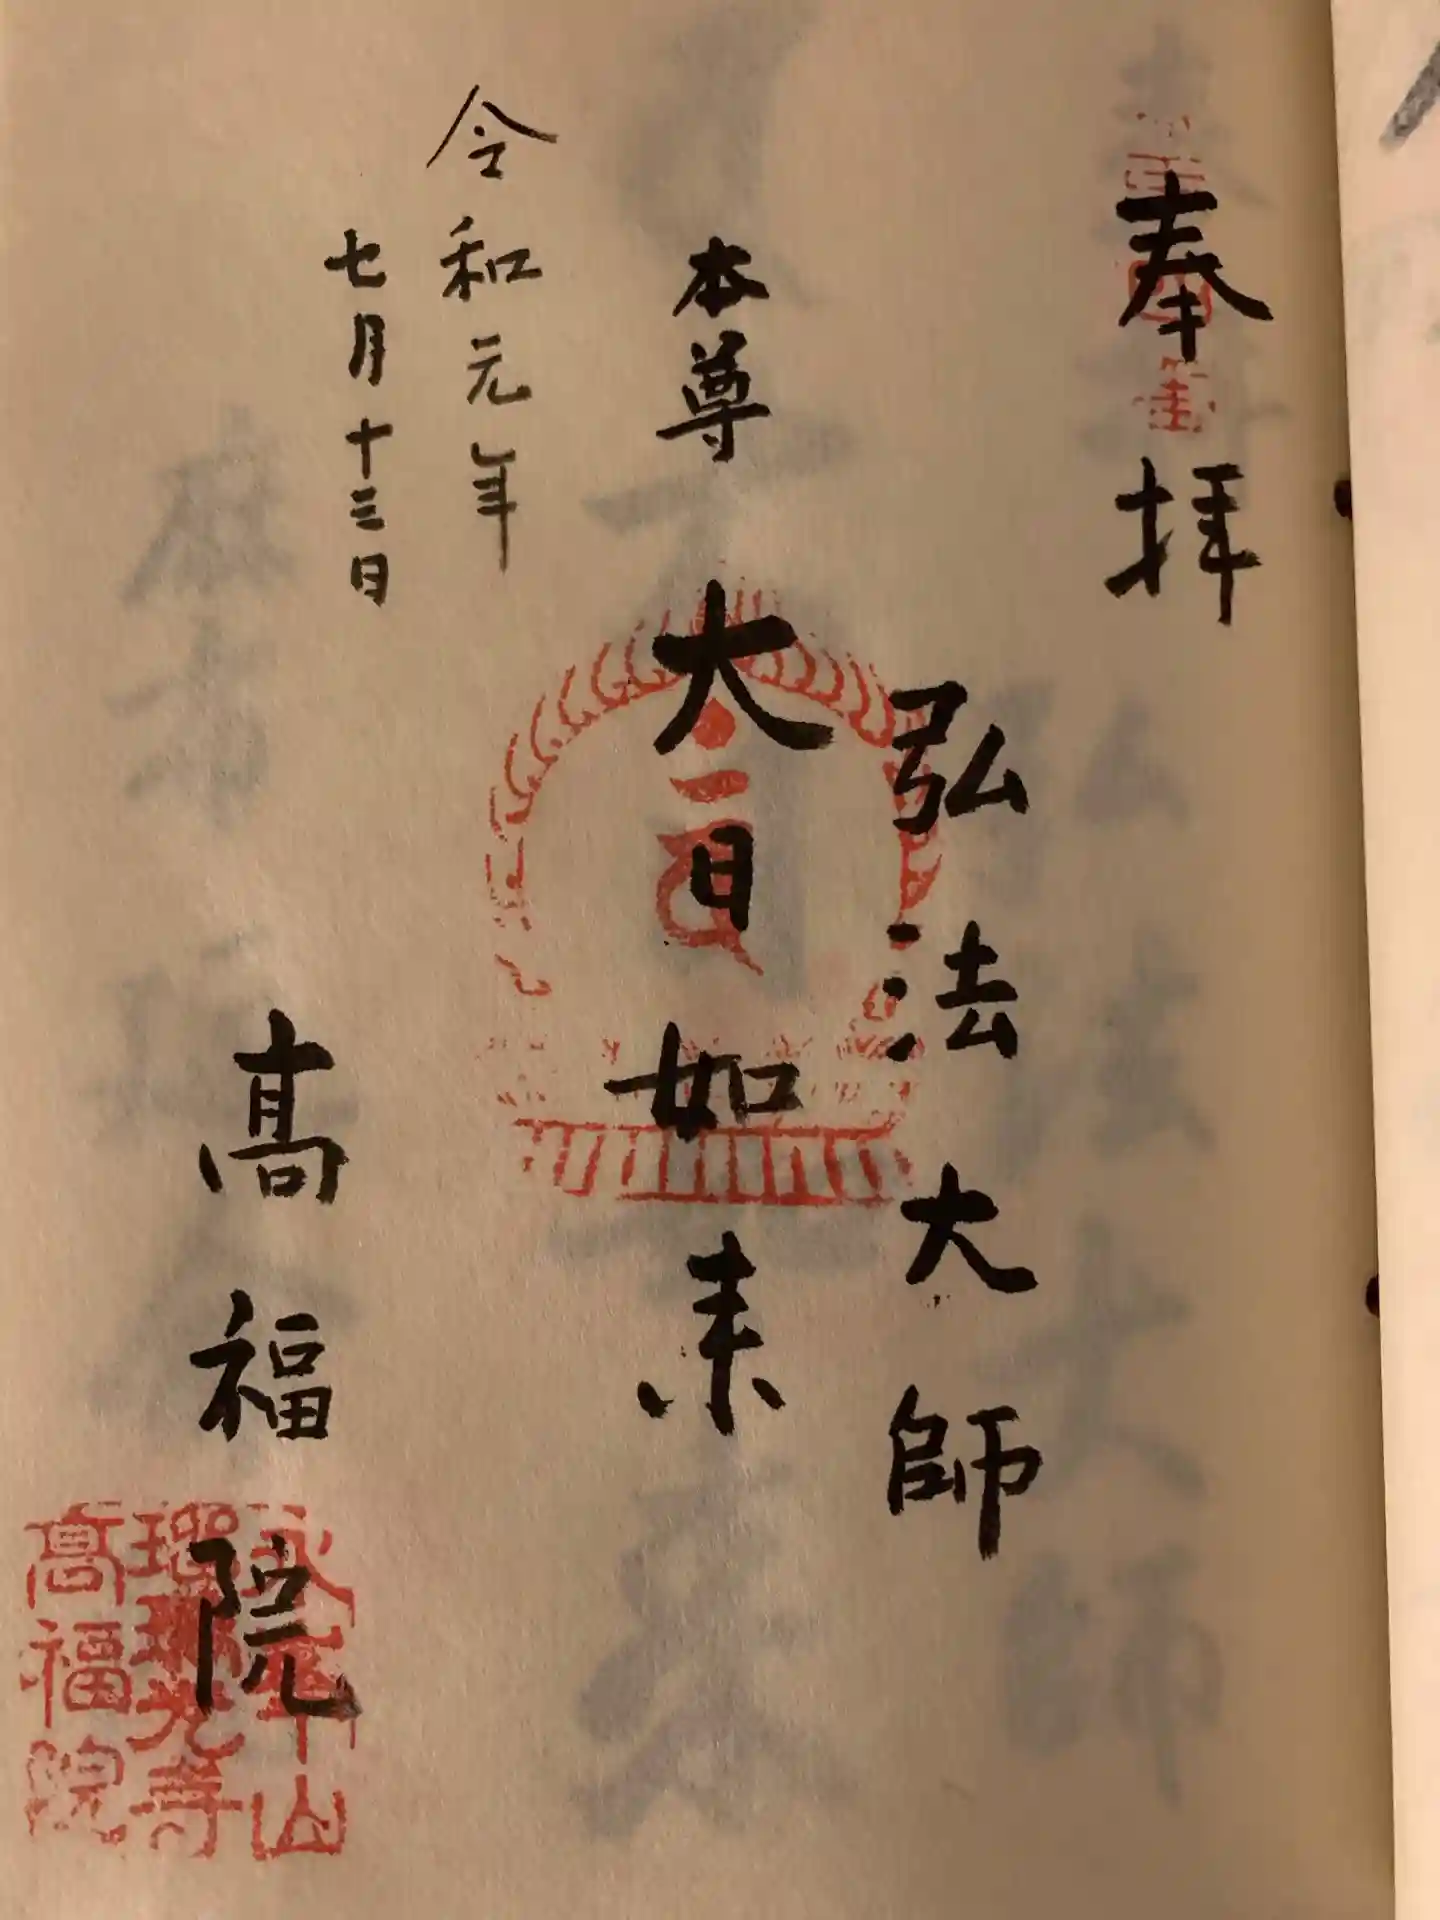 奉拝
弘法大師
本尊
大日如来
令和元年
七月十三日
高福院
山
瑠璃光寺
高福院